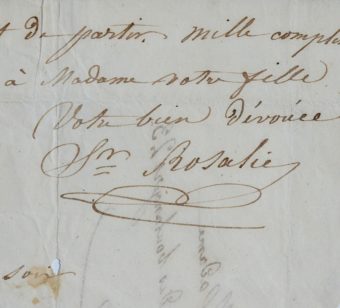 t de partir. mille compli
à Madame votre fille
Votre bien dévouée
Sr Rosalie
soir